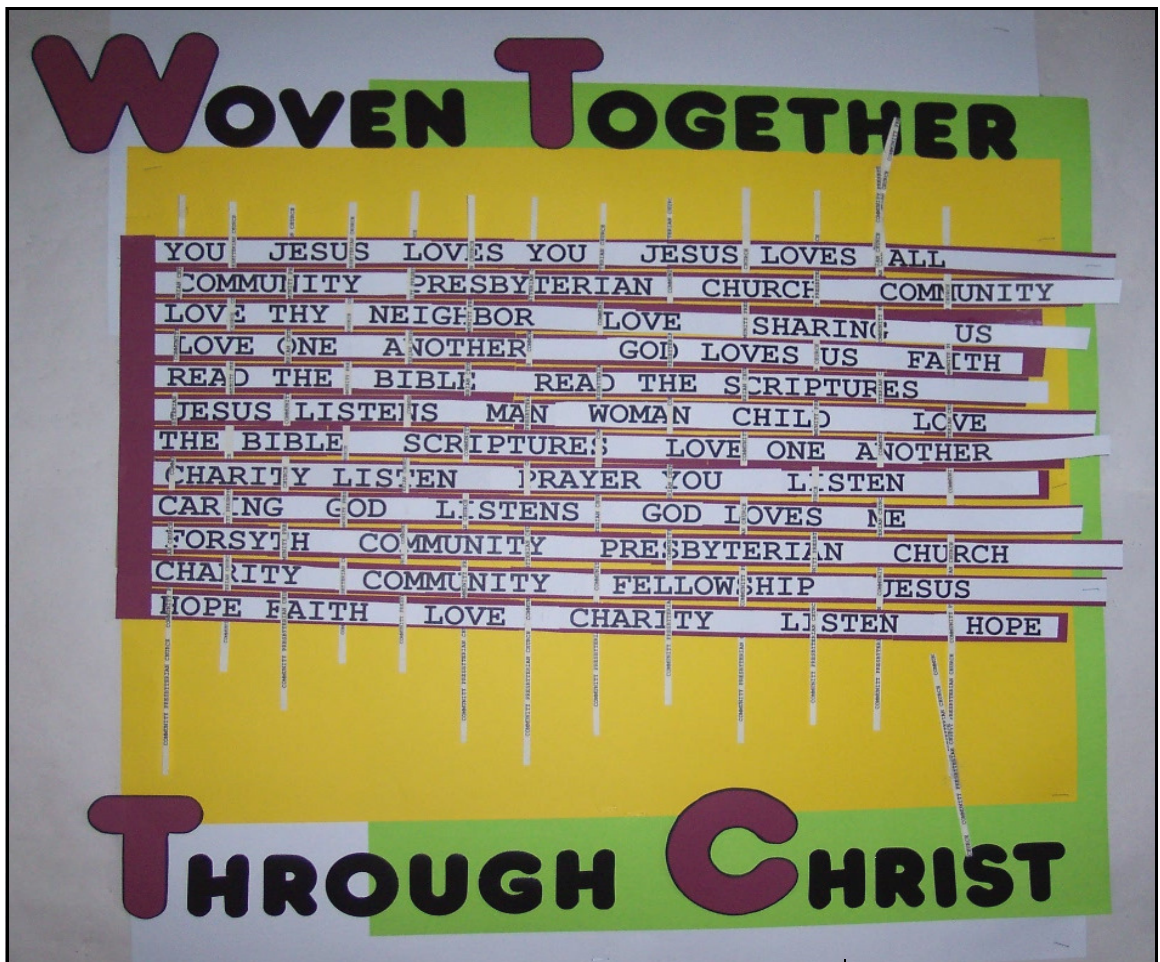 WOVEN TOGETHER
YOU JESUS LOVES YOU JESUS LOVES ALL
COMMUNITY PRESBYTERIAN CHURCH COMMUNITY
LOVE THY NEIGHBOR LOVE SHARING US
LOVE ONE ANOTHER GOD LOVES US FAITH
READ THE BIBLE READ THE SCRIPTURES
JESUS LISTENS MAN WOMAN CHILD LOVE
THE BIBLE SCRIPTURES LOVE ONE ANOTHER
CHARITY LISTEN PRAYER YOU LISTEN
CARING GOD LISTENS GOD LOVES ME
FORSYTH COMMUNITY PRESBYTERIAN CHURCH
CHARITY COMMUNITY FELLOWSHIP JESUS
HOPE FAITH LOVE CHARITY LISTEN HOPE
COMMUNITY PRESBYTERIAN CHURCH
THROUGH CHRIST